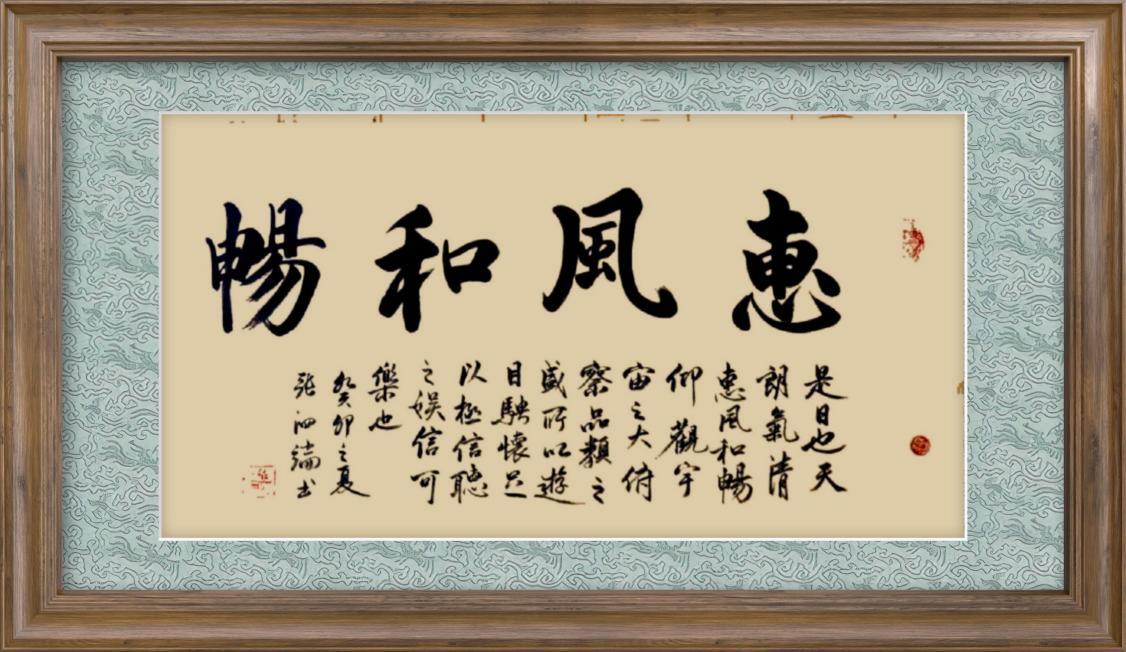 惠風和暢
是日也天
朗氣清
惠風和暢
仰觀宇
宙之大俯
察品類之
盛所以遊
目騁懷足
以極視聽
之娛信可
樂也
癸卯之夏
張泗书